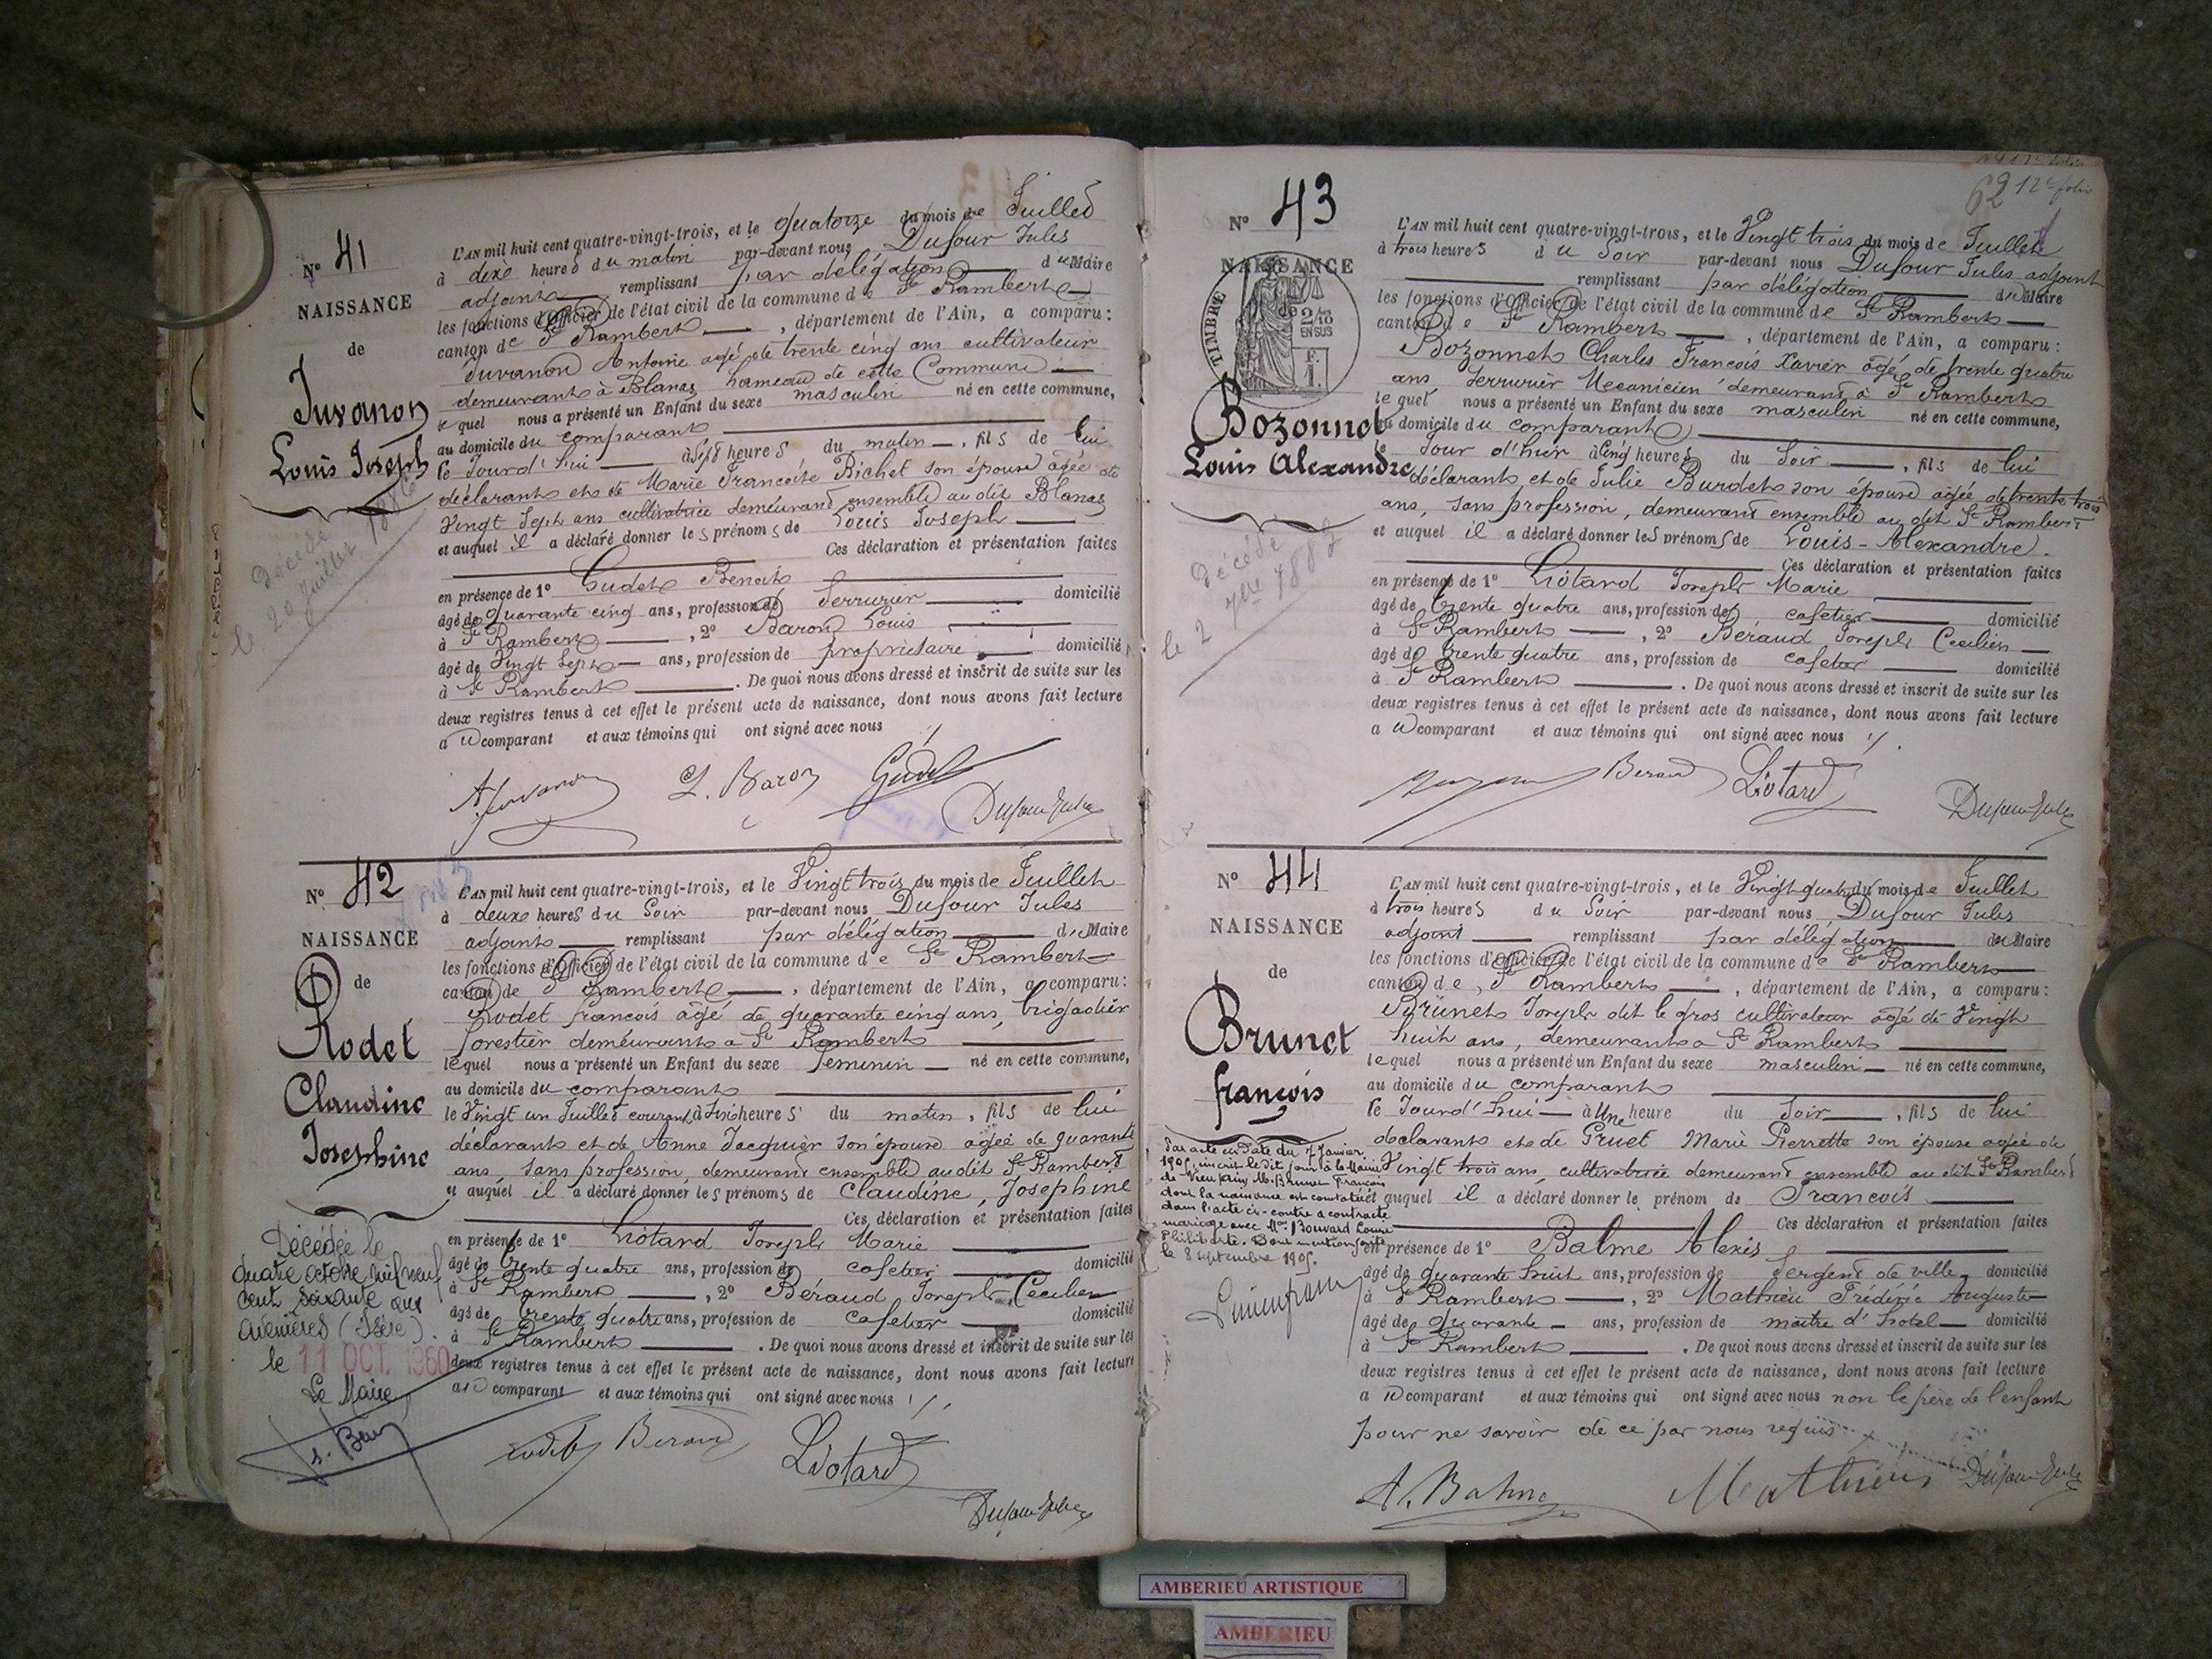 N° 41
NAISSANCE
de
Juvanon
Louis Joseph
Décédé
le 20 Juillet 1886
L'AN mil huit cent quatre-vingt-trois, et le quatorze du mois de Juillet
à dixe heures du matin par-devant nous Dufour Jules
adjoint remplissant par délégation du Maire
les fonctions d'Officier de l'état civil de la commune de St Rambert
canton de St Rambert, département de l'Ain, a comparu:
Juvanon Antoine agé de trente cinq ans cultivateur
demeurant à Blanas hameau de cette Commune
lequel nous a présenté un Enfant du sexe masculin né en cette commune,
au domicile du comparant
le Jourd'hui à Sept heures du matin, fils de lui
déclarant et de Marie Francoise Bichet son épouse agée de
Vingt Sept ans cultivatrice demeurant ensemble au dit Blanas
et auquel il a déclaré donner les prénoms de Louis Joseph
Ces déclaration et présentation faites
en présence de 1° Gudet Benoit
âgé de quarante cinq ans, profession de Serrurier domicilié
à St Rambert, 2° Baron Louis
âgé de Vingt Sept ans, profession de propriétaire domicilié
à St Rambert. De quoi nous avons dressé et inscrit de suite sur les
deux registres tenus à cet effet le présent acte de naissance, dont nous avons fait lecture
au comparant et aux témoins qui ont signé avec nous
A Juvanon L. Baron Gudet
Dufour Jules
N° 42
NAISSANCE
de
Rodet
Claudine
Josephine
Décédée le
quatre octobre mil neuf
cent soixante aux
Avenières (Isère).
le 11 OCT. 1960
Le Maire
L'AN mil huit cent quatre-vingt-trois, et le Vingt trois du mois de Juillet
à deuxe heures du Soir par-devant nous Dufour Jules
adjoint remplissant par délégation du Maire
les fonctions d'Officier de l'état civil de la commune de St Rambert
canton de St Rambert, département de l'Ain, a comparu:
Rodet francois âgé de quarante cinq ans, brigadier
forestier demeurant à St Rambert
lequel nous a présenté un Enfant du sexe feminin né en cette commune,
au domicile du comparant
le Vingt un Juillet courant à heures du matin, fils de lui
déclarant et de Anne Jacquier son épouse agée de quarante
ans, sans profession, demeurant ensemble au dit St Rambert
et auquel il a déclaré donner les prénoms de Claudine, Josephine
Ces déclaration et présentation faites
en présence de 1° Liotard Joseph Marie
âgé de trente quatre ans, profession de cafetier domicilié
à St Rambert, 2° Béraud Joseph Cecilien
âgé de trente quatre ans, profession de cafetier domicilié
à St Rambert. De quoi nous avons dressé et inscrit de suite sur les
deux registres tenus à cet effet le présent acte de naissance, dont nous avons fait lecture
au comparant et aux témoins qui ont signé avec nous
Rodet Beraud Liotard
Dufour Jules
62 12e folio
N° 43
NAISSANCE
de
TIMBRE
2/10
EN SUS
Bozonnet
Louis Alexandre
Décédé
le 2 7bre 1883
L'AN mil huit cent quatre-vingt-trois, et le Vingt trois du mois de Juillet
à trois heures du Soir par-devant nous Dufour Jules adjoint
remplissant par délégation du Maire
les fonctions d'Officier de l'état civil de la commune de St Rambert
canton de St Rambert, département de l'Ain, a comparu:
Bozonnet Charles Francois Xavier âgé de trente quatre
ans, Serrurier Mecanicien demeurant à St Rambert
lequel nous a présenté un Enfant du sexe masculin né en cette commune,
au domicile du comparant
le Jour d'hier à Cinq heures du Soir, fils de lui
déclarant et de Julie Burdet son épouse agée de trente trois
ans, sans profession, demeurant ensemble au dit St Rambert
et auquel il a déclaré donner les prénoms de Louis-Alexandre.
Ces déclaration et présentation faites
en présence de 1° Liotard Joseph Marie
âgé de trente quatre ans, profession de cafetier domicilié
à St Rambert, 2° Béraud Joseph Cecilien
âgé de trente quatre ans, profession de cafetier domicilié
à St Rambert. De quoi nous avons dressé et inscrit de suite sur les
deux registres tenus à cet effet le présent acte de naissance, dont nous avons fait lecture
au comparant et aux témoins qui ont signé avec nous
Beraud Liotard
Dufour Jules
N° 44
NAISSANCE
de
Brunet
françois
Par acte en date du 7 Janvier
1905, inscrit le dit jour à la Mairie
de Mr Brunet François
dont la naissance est constatée
dans l'acte ci-contre a contracté
mariage avec Mlle Bouvard Louise
Philiberte. Dont mention faite
le 8 septembre 1905.
L'AN mil huit cent quatre-vingt-trois, et le Vingt quatre du mois de Juillet
à trois heures du Soir par-devant nous Dufour Jules
adjoint remplissant par délégation du Maire
les fonctions d'Officier de l'état civil de la commune de St Rambert
canton de St Rambert, département de l'Ain, a comparu:
Brunet Joseph dit le gros cultivateur agé de Vingt
huit ans, demeurant à St Rambert
lequel nous a présenté un Enfant du sexe masculin né en cette commune,
au domicile du comparant
le Jourd'hui à Une heure du Soir, fils de lui
déclarant et de Gruet Marie Pierrette son épouse agée de
Vingt trois ans, cultivatrice demeurant ensemble au dit St Rambert
et auquel il a déclaré donner le prénom de Francois
Ces déclaration et présentation faites
en présence de 1° Balme Alexis
âgé de quarante huit ans, profession de Sergent de ville domicilié
à St Rambert, 2° Mathieu Fréderic Auguste
âgé de quarante ans, profession de maître d'hotel domicilié
à St Rambert. De quoi nous avons dressé et inscrit de suite sur les
deux registres tenus à cet effet le présent acte de naissance, dont nous avons fait lecture
au comparant et aux témoins qui ont signé avec nous non le père de l'enfant
pour ne savoir de ce par nous requis
A. Balme Mathieu Dufour Jules
AMBERIEU ARTISTIQUE
AMBERIEU